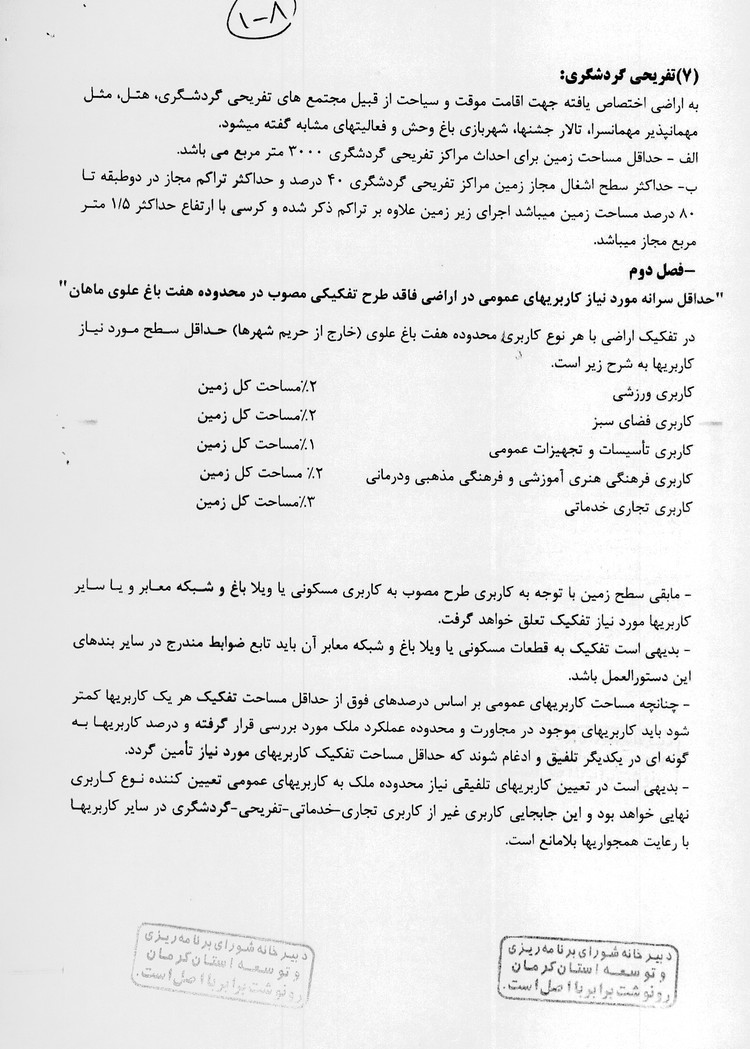 ۱-۸
(۷)تفریحی گردشگری:
به اراضی اختصاص یافته جهت اقامت موقت و سیاحت از قبیل مجتمع های تفریحی گردشگری، هتل، مثل
مهمانپذیر مهمانسرا، تالار جشنها، شهربازی باغ وحش و فعالیتهای مشابه گفته میشود.
الف - حداقل مساحت زمین برای احداث مراکز تفریحی گردشگری ۳۰۰۰ متر مربع می باشد.
ب- حداکثر سطح اشغال مجاز زمین مراکز تفریحی گردشگری ۴۰ درصد و حداکثر تراکم مجاز در دوطبقه تا
۸۰ درصد مساحت زمین میباشد اجرای زیر زمین علاوه بر تراکم ذکر شده و کرسی با ارتفاع حداکثر ۱/۵ متر
مربع مجاز میباشد.
-فصل دوم
"حداقل سرانه مورد نیاز کاربریهای عمومی در اراضی فاقد طرح تفکیکی مصوب در محدوده هفت باغ علوی ماهان"
در تفکیک اراضی با هر نوع کاربری محدوده هفت باغ علوی (خارج از حریم شهرها) حداقل سطح مورد نیاز
کاربریها به شرح زیر است.
کاربری ورزشی ۲٪مساحت کل زمین
کاربری فضای سبز ۲٪مساحت کل زمین
کاربری تأسیسات و تجهیزات عمومی ۱٪مساحت کل زمین
کاربری فرهنگی هنری آموزشی و فرهنگی مذهبی ودرمانی ۲٪ مساحت کل زمین
کاربری تجاری خدماتی ۳٪مساحت کل زمین
- مابقی سطح زمین با توجه به کاربری طرح مصوب به کاربری مسکونی یا ویلا باغ و شبکه معابر و یا سایر
کاربریها مورد نیاز تفکیک تعلق خواهد گرفت.
- بدیهی است تفکیک به قطعات مسکونی یا ویلا باغ و شبکه معابر آن باید تابع ضوابط مندرج در سایر بندهای
این دستورالعمل باشد.
- چنانچه مساحت کاربریهای عمومی بر اساس درصدهای فوق از حداقل مساحت تفکیک هر یک کاربریها کمتر
شود باید کاربریهای موجود در مجاورت و محدوده عملکرد ملک مورد بررسی قرار گرفته و درصد کاربریها به
گونه ای در یکدیگر تلفیق و ادغام شوند که حداقل مساحت تفکیک کاربریهای مورد نیاز تأمین گردد.
- بدیهی است در تعیین کاربریهای تلفیقی نیاز محدوده ملک به کاربریهای عمومی تعیین کننده نوع کاربری
نهایی خواهد بود و این جابجایی کاربری غیر از کاربری تجاری-خدماتی-تفریحی-گردشگری در سایر کاربریها
با رعایت همجواریها بلامانع است.
دبیرخانه شورای برنامه ریزی
و توسعه استان کرمان
رونوشت برابر با اصل است.
دبیرخانه شورای برنامه ریزی
و توسعه استان کرمان
رونوشت برابر با اصل است.